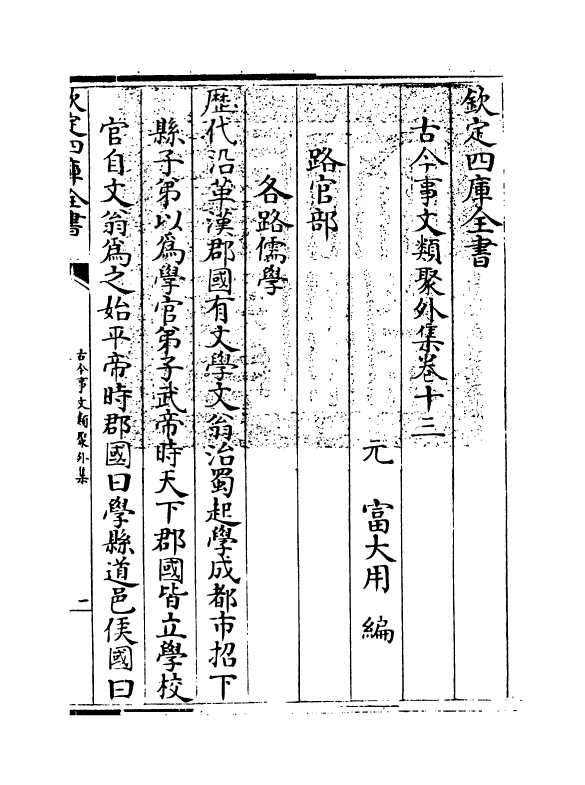 欽定四庫全書
古今事文類聚外集卷十三
元　富大用　編
路官部
各路儒學
歴代沿革漢郡國有文學文翁治蜀起學成都市招下
縣子弟以為學官弟子武帝時天下郡國皆立學校
官自文翁為之始平帝時郡國曰學縣道邑侯國曰
欽定四庫全書
古今事文類聚外集
一